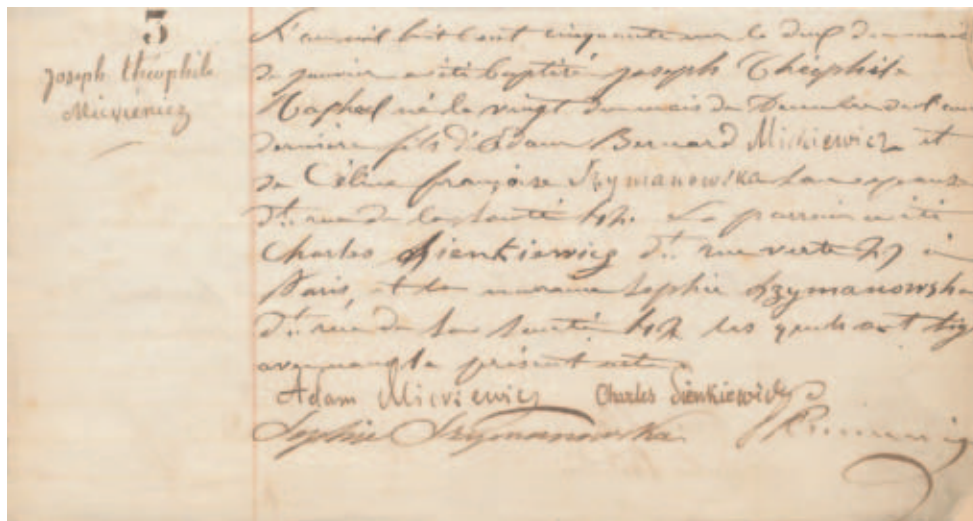 3
Joseph théophile
Mickiewicz
L'an mil huit cent cinquante un le dix du mois
de janvier a été baptisé Joseph Théophile
Raphael né le vingt du mois de Décembre de l'année
dernière fils d'Adam Bernard Mickiewicz et
de Céline françoise Szymanowska son épouse
dt rue de la Santé 42. Le parrain a été
Charles Sienkiewicz dt rue verte 27 à
Paris, et la marraine Sophie Szymanowska
dt rue de la Santé 42 les quels ont signé
avec nous le présent acte
Adam Mickiewicz Charles Sienkiewicz
Sophie Szymanowska